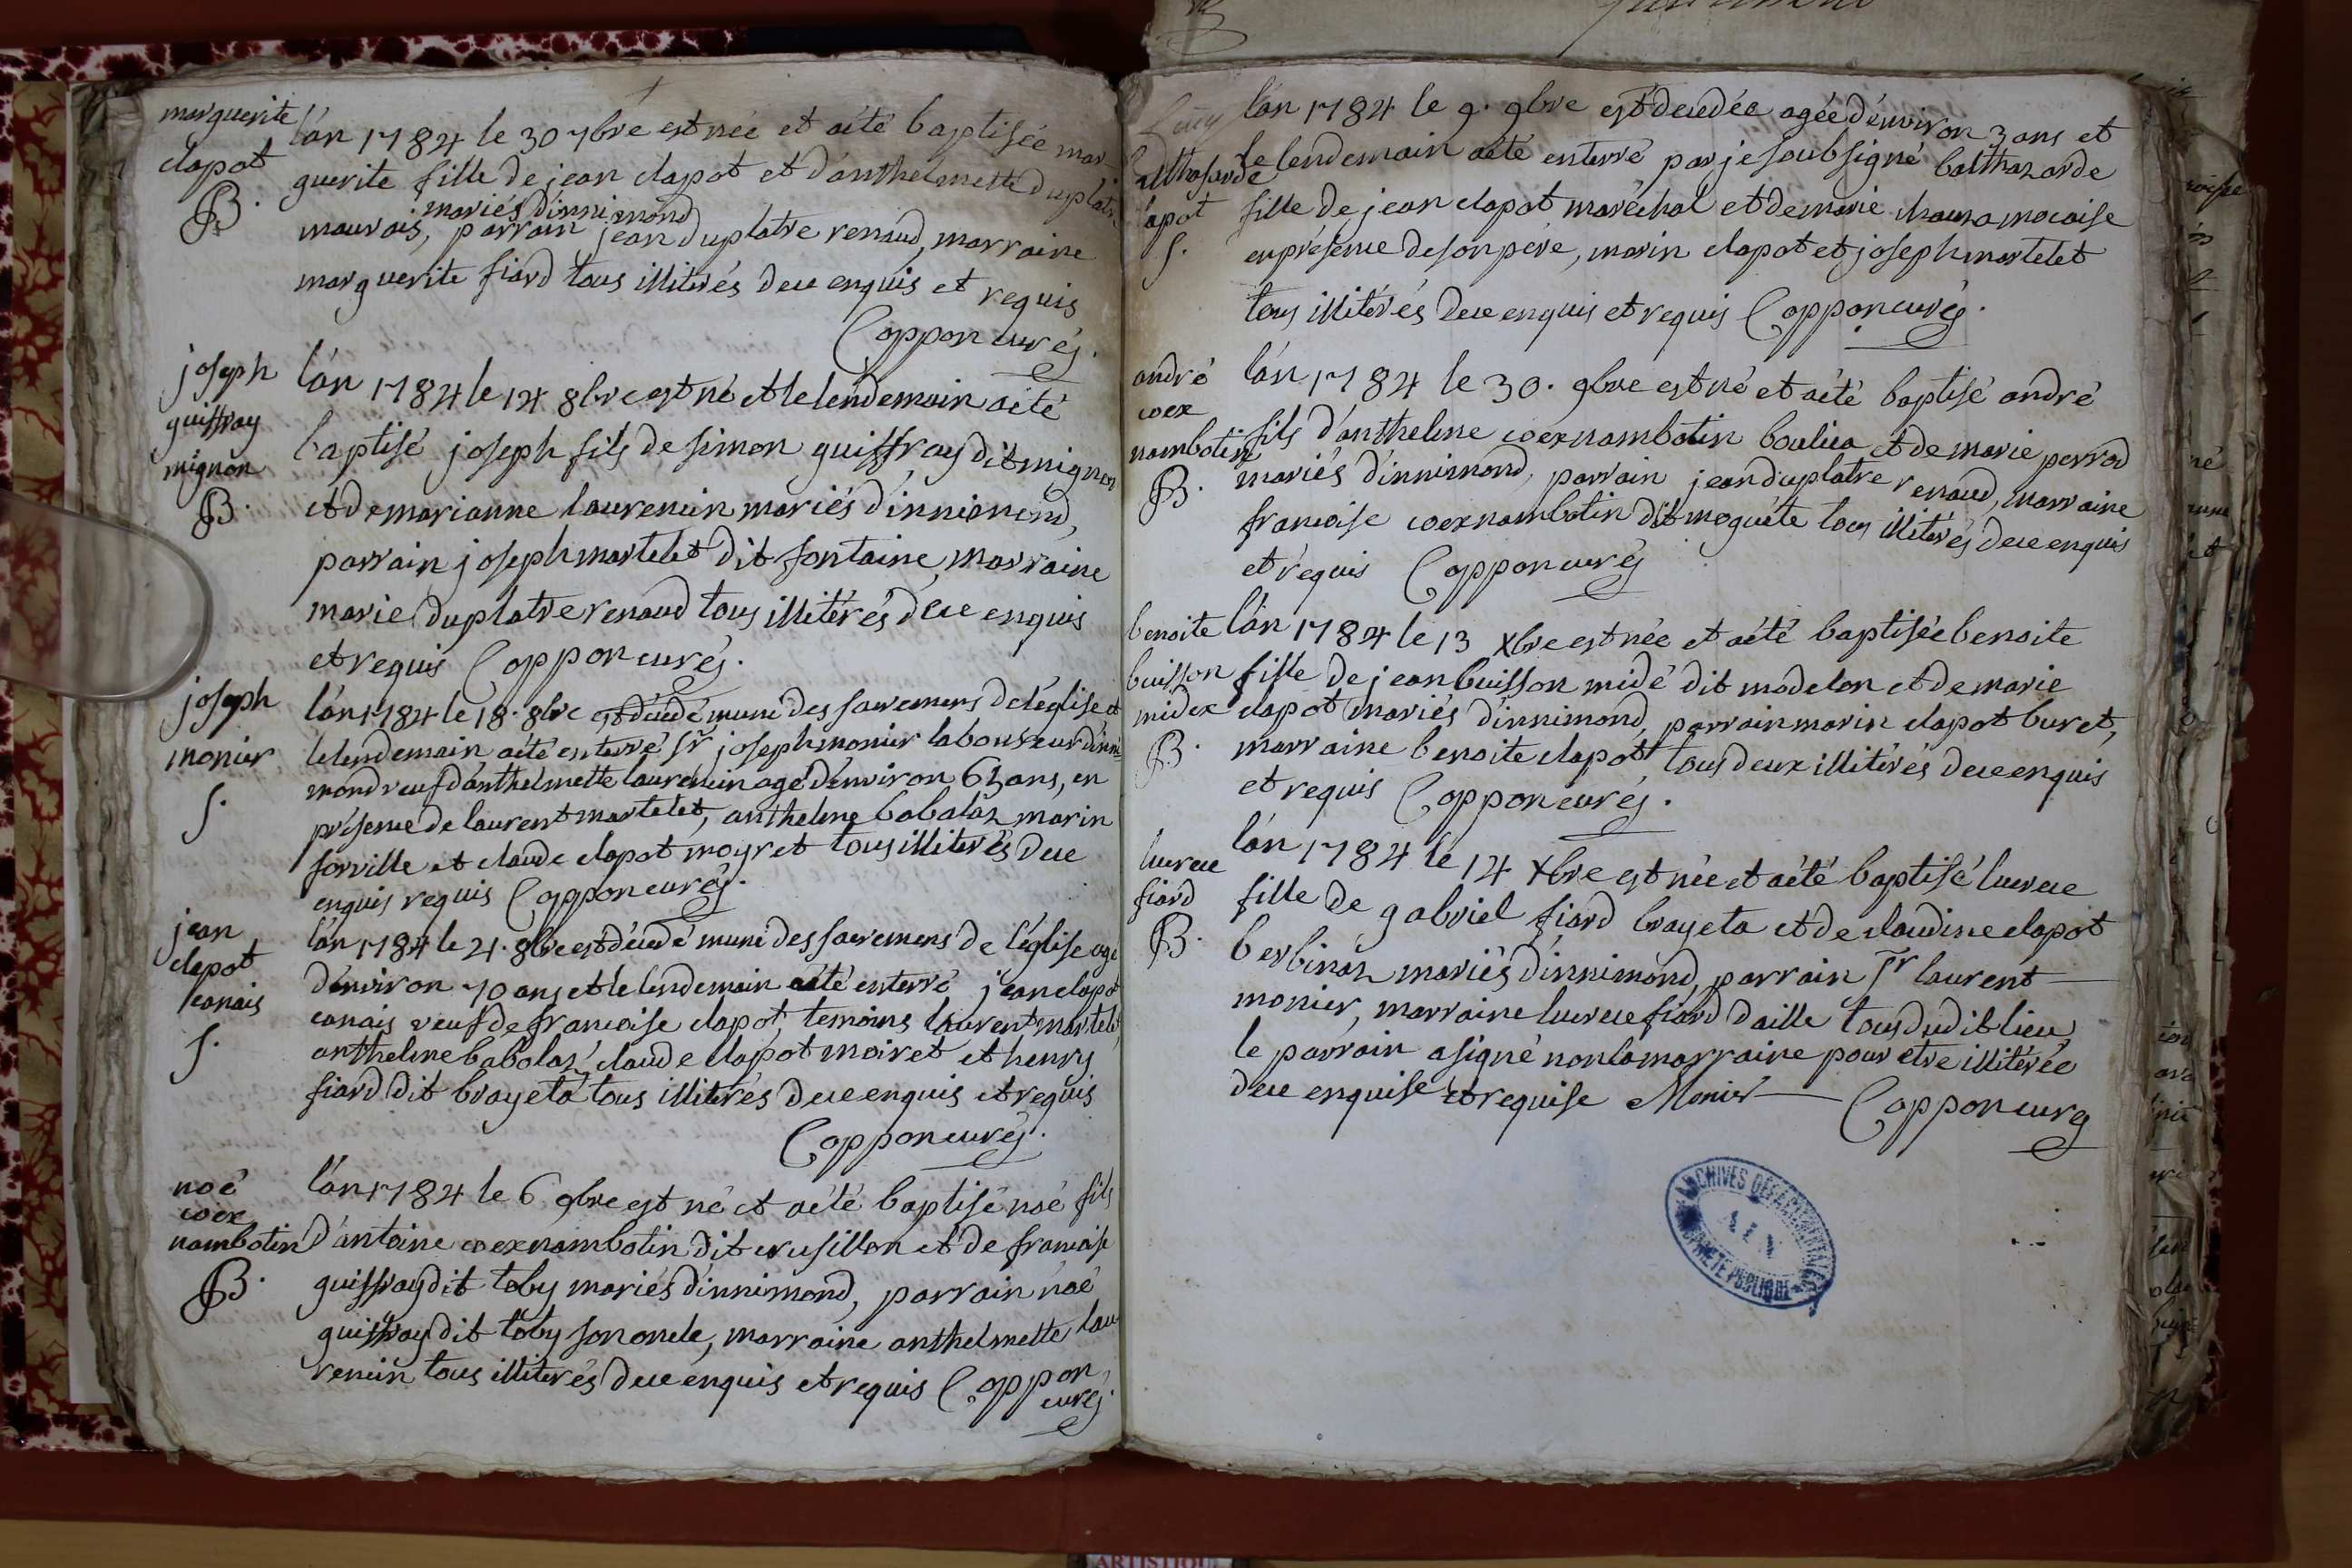 marguerite
clapot
B.
lán 1784 le 30 7bre est née et aété baptisée mar
guerite fille de jean clapot et d'anthelmette duplatre
mariés dinnimond
mauvais, parrain jean duplatre renaud, marraine
marguerite fiard tous illitérés dece enquis et requis
Coppon curé
joseph
guiffray
mignon
B.
lán 1784 le 14 8bre est né et le lendemain aété
baptisé joseph fils de simon guiffray dit mignon
et de marianne laurencin mariés d'innimond,
parrain joseph martelet dit fontaine, marraine
marie duplatre renaud tous illitérés dece enquis
et requis Coppon curé.
joseph
monier
S.
lán 1784 le 18. 8bre est décédé muni des sacremens de l'église et
le lendemain aété enterré Sr joseph monier laboureur dinni
mond veuf d'anthelmette laurencin agé d'environ 63 ans, en
présence de laurent martelet, anthelme babolaz marin
forville et claude clapot moyret tous illitérés dece
enquis requis Coppon curé.
jean
clapot
canais
S.
lán 1784 le 21. 8bre est décédé muni des sacremens de l'église agé
d'environ 70 ans et le lendemain aété enterré jean clapot
canais veuf de francoise clapot, temoins laurent martelet,
anthelme babolaz, claude clapot moiret et henry
fiard dit brayeta tous illitérés dece enquis et requis
Coppon curé.
noé
coex
nambotin
B.
lán 1784 le 6 9bre est né et aété baptisé noé fils
d'antoine coexnambotin dit crusillon et de francoise
guiffray dit toby mariés d'innimond, parrain noé
guiffray dit toby son oncle, marraine anthelmette lau
rencin tous illitérés dece enquis et requis Coppon
curé.
althasarde
lapot
S.
lán 1784 le 9. 9bre est décedée agée d'environ 3 ans et
le lendemain aété enterré par je soubsigné balthazarde
fille de jean clapot maréchal et de marie
en présence de son pére, marin clapot et joseph martelet
tous illitérés dece enquis et requis Coppon curé.
andré
coex
nambotin
B.
lán 1784 le 30. 9bre est né et aété baptisé andré
fils d'anthelme coexnambotin boulica et de marie perrod
mariés d'innimond, parrain jean duplatre renaud, marraine
francoise coexnambotin dit moquéte tous illitérés dece enquis
et réquis Coppon curé
benoite
buisson
midex
B.
lán 1784 le 13 Xbre est née et aété baptisée benoite
fille de jean buisson midé dit madelon et de marie
clapot mariés d'innimond, parrain marin clapot buret,
marraine benoite clapot tous deux illitérés dece enquis
et requis Coppon curé.
lucrece
fiard
B.
lán 1784 le 14 Xbre est née et aété baptisé lucrece
fille de gabriel fiard brayeta et de claudine clapot
berbinaz mariés d'innimond, parrain Sr laurent
monier, marraine lucrece fiard daille tous dudit lieu,
le parrain a signé non la marraine pour etre illitérée
dece enquise et requise Monier Coppon curé
ARCHIVES DEPARTEMENTALES
AIN
PROPRIETE PUBLIQUE
ARTISTIQU